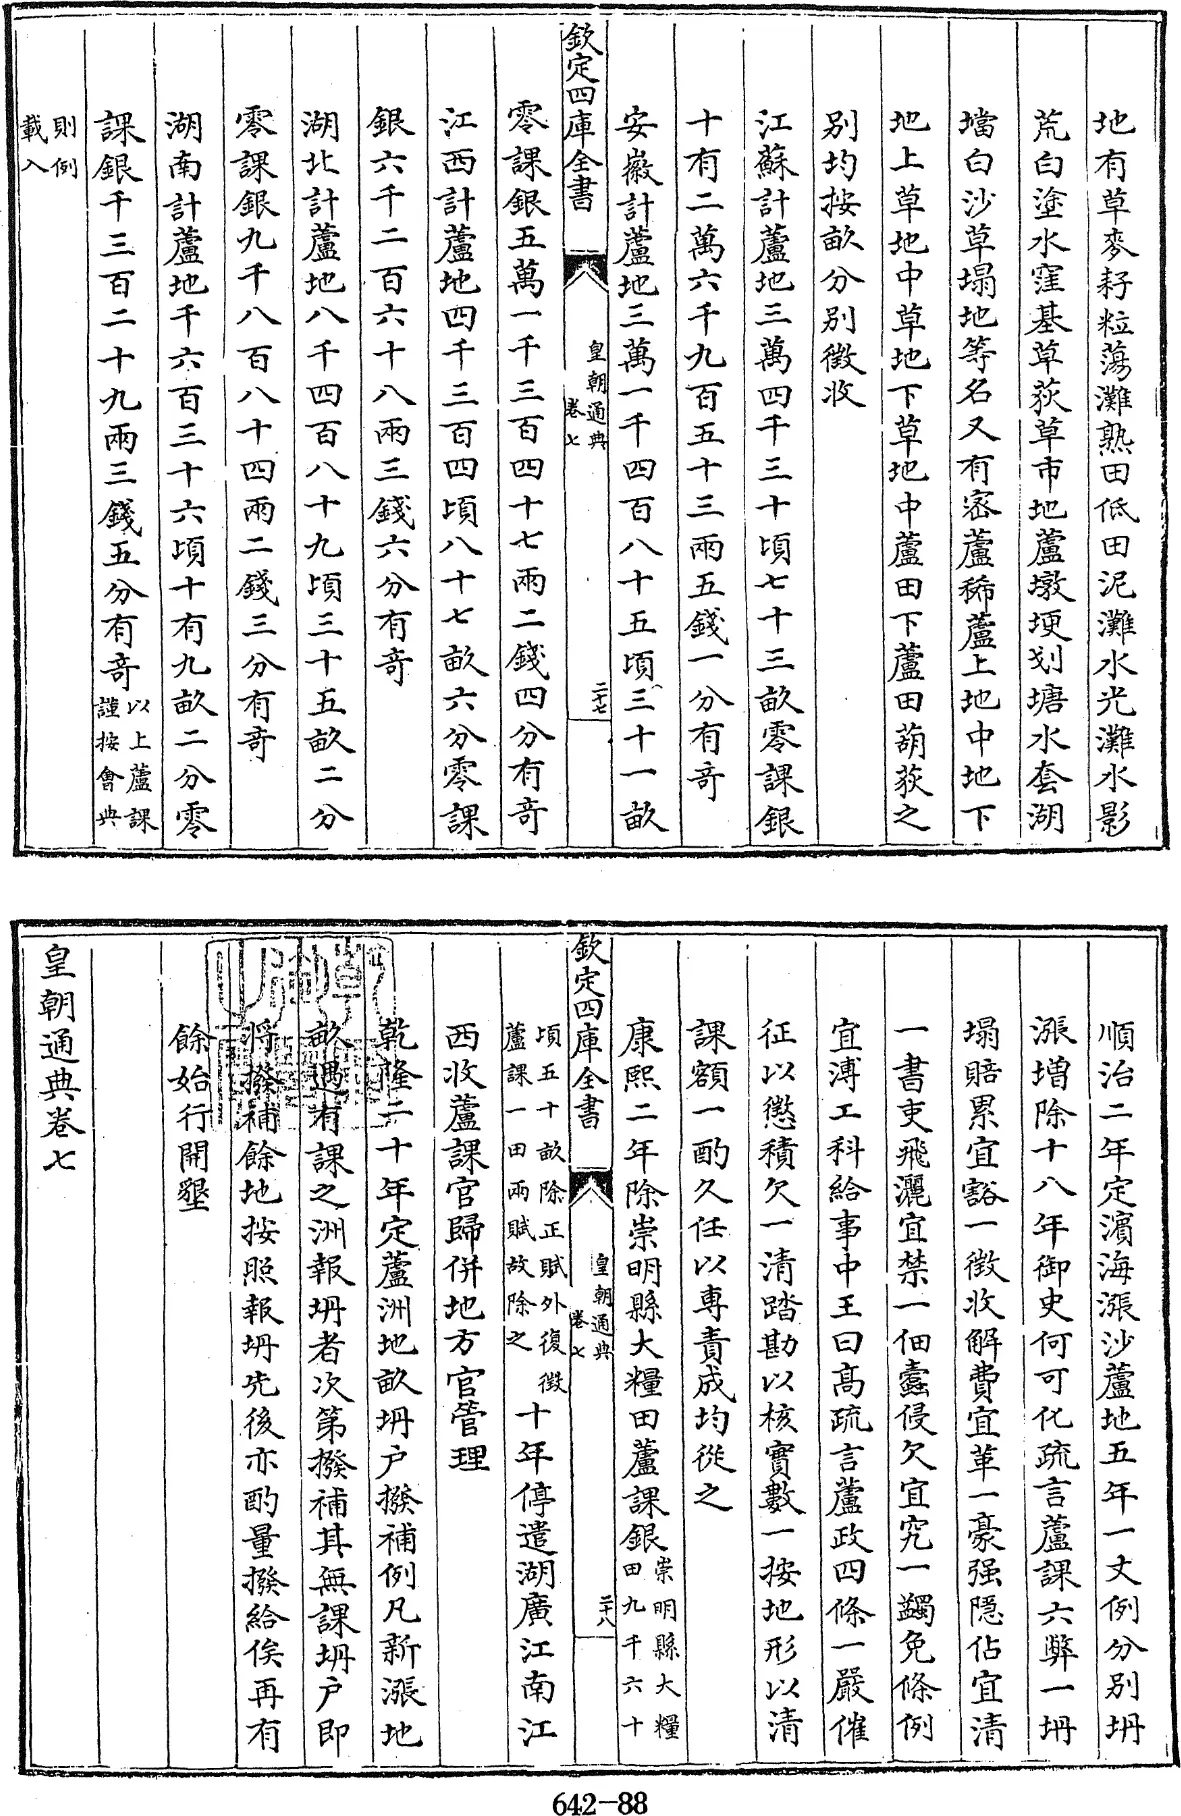 地有草麥耔粒蕩灘熟田低田泥灘水光灘水影
荒白塗水窪基草荻草市地蘆墩埂划塘水套湖
壋白沙草塌地等名又有密蘆稀蘆上地中地下
地上草地中草地下草地中蘆田下蘆田葫荻之
別均按畝分別徵收
江蘇計蘆地三萬四千三十頃七十三畝零課銀
十有二萬六千九百五十三兩五錢一分有奇
安徽計蘆地三萬一千四百八十五頃三十一畝
欽定四庫全書
皇朝通典
卷七
二十七
零課銀五萬一千三百四十七兩二錢四分有奇
江西計蘆地四千三百四頃八十七畝六分零課
銀六千二百六十八兩三錢六分有奇
湖北計蘆地八千四百八十九頃三十五畝二分
零課銀九千八百八十四兩二錢三分有奇
湖南計蘆地千六百三十六頃十有九畝二分零
課銀千三百二十九兩三錢五分有奇以上蘆課謹按會典
則例載入
順治二年定濱海漲沙蘆地五年一丈例分別坍
漲增除十八年御史何可化疏言蘆課六弊一坍
塌賠累宜豁一徵收解費宜革一豪强隱佔宜清
一書吏飛灑宜禁一佃蠹侵欠宜究一蠲免條例
宜溥工科給事中王曰高疏言蘆政四條一嚴催
征以懲積欠一清踏勘以核實數一按地形以清
課額一酌久任以專責成均從之
康熙二年除崇明縣大糧田蘆課銀崇明縣大糧田九千六十
欽定四庫全書
皇朝通典
卷七
二十八
頃五十畝除正賦外復徵蘆課一田兩賦故除之十年停遣湖廣江南江
西收蘆課官歸併地方官管理
乾隆二十年定蘆洲地畝坍户撥補例凡新漲地
畝遇有課之洲報坍者次第撥補其無課坍户即
將撥補餘地按照報坍先後亦酌量撥給俟再有
餘始行開墾
皇朝通典卷七
642-88